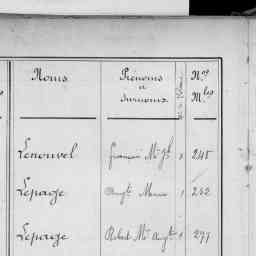 Noms. Prénoms et surnoms. Nos Mles
Lenouvel François Me Jh 1 245
Lepage Augte Marie 1 242
Lepage Robert Me Augte 1 271